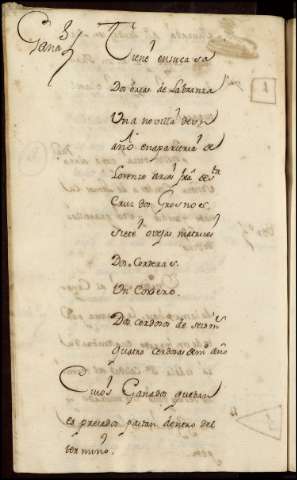 Ganado
Tiene en su casa
Dos bacas de Labranza
Una novilla de un
año en aparieria de
Lorenzo Arias fra de sta
Cruz dos Grosnoes.
siete ovejas matrices
Dos Corderas.
Un Cordero.
Dos cerdosos de seis ms
quatro cerdosas de m.o año
Cuios Ganados quedan
expresados pastan dentro del
termino.